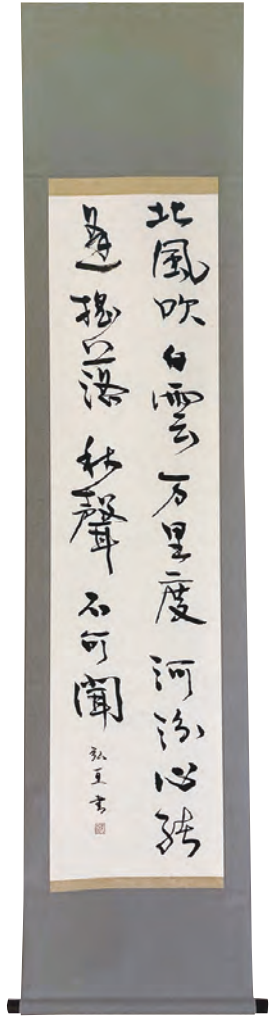 北風吹白雲万里度河汾心緒
逢搖落秋聲不可聞
書